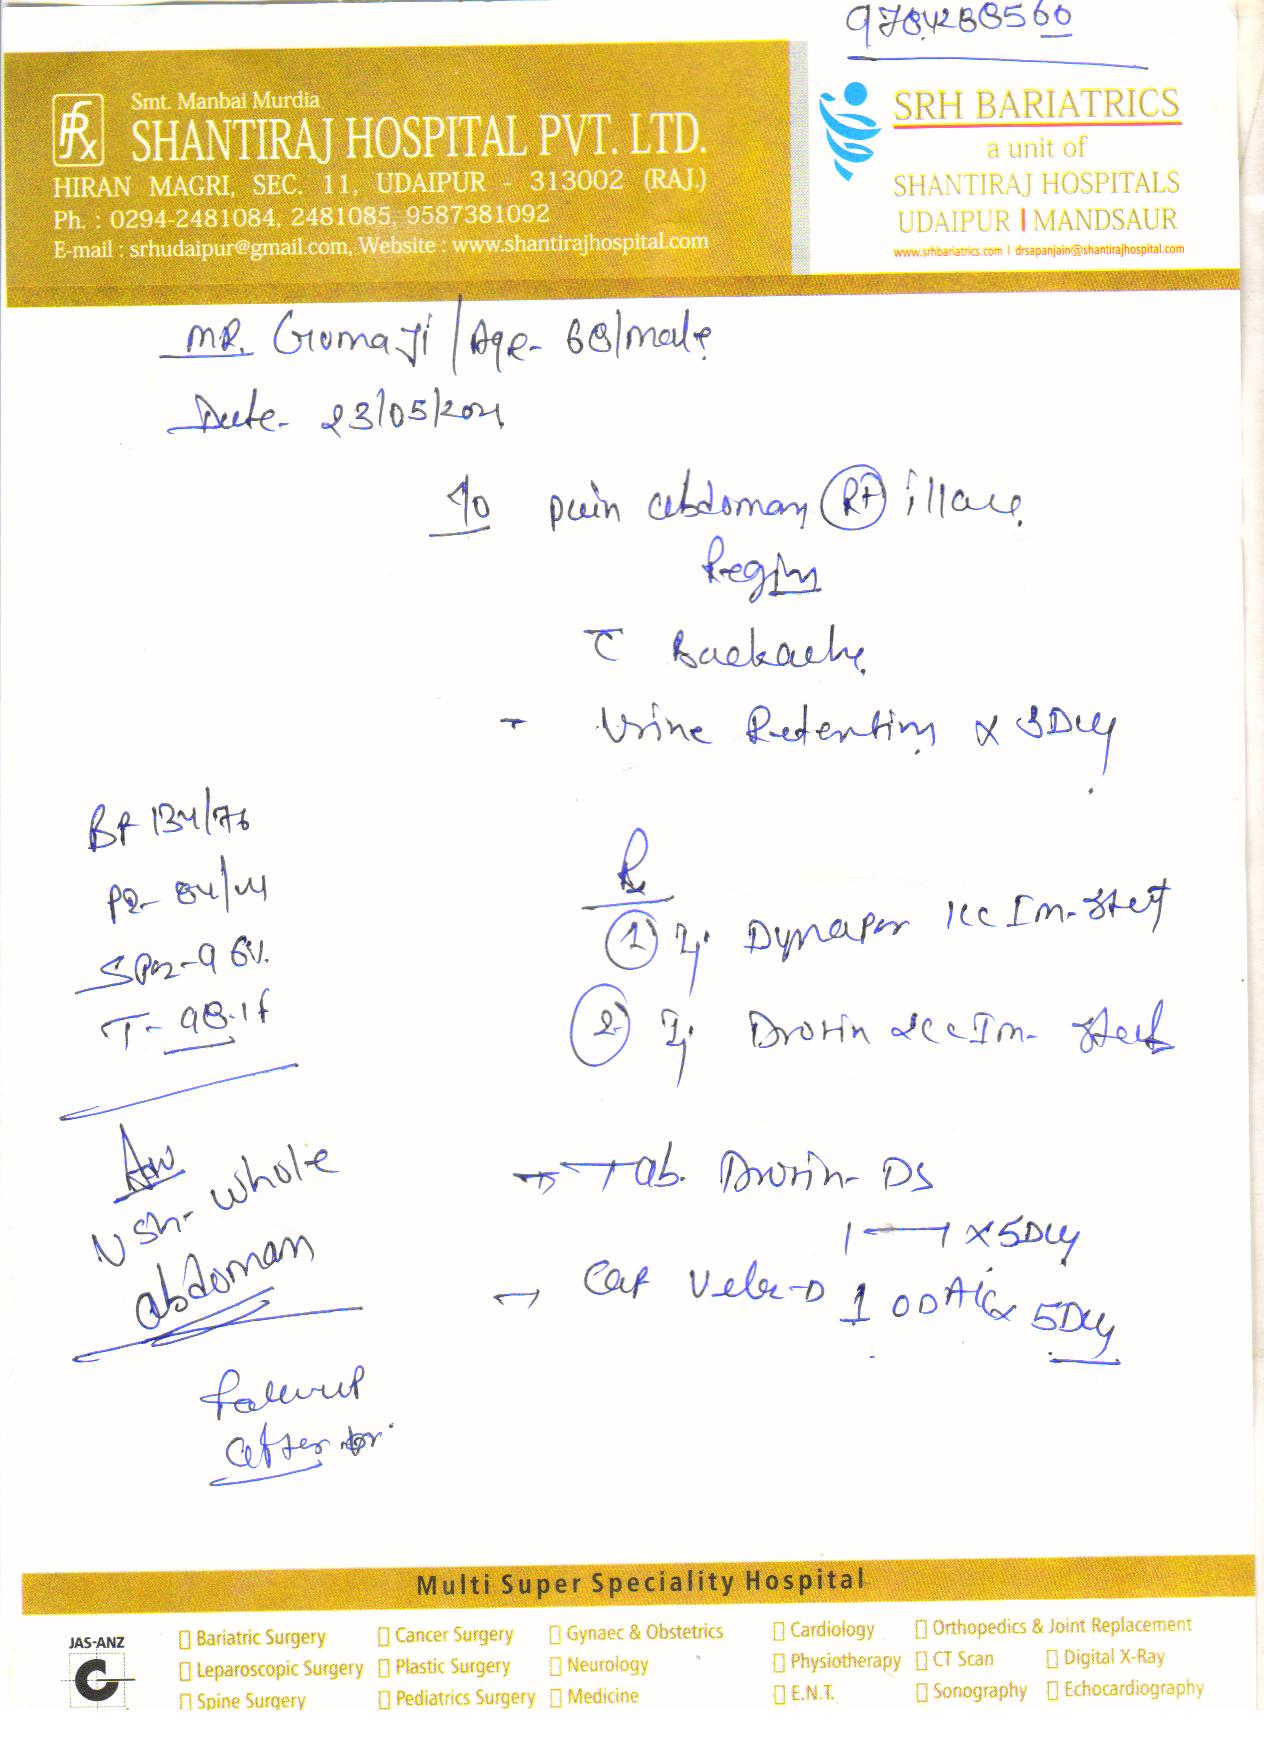 9784288560
Smt. Manbai Murdia
SHANTIRAJ HOSPITAL PVT. LTD.
HIRAN MAGRI, SEC. 11, UDAIPUR - 313002 (RAJ.)
Ph. : 0294-2481084, 2481085, 9587381092
E-mail : srhudaipur@gmail.com, Website : www.shantirajhospital.com
SRH BARIATRICS
a unit of
SHANTIRAJ HOSPITALS
UDAIPUR | MANDSAUR
www.srhbariatrics.com | drsapanjain@shantirajhospital.com
MR. Goma Ji / Age- 68/male
Date- 23/05/2021
pain abdoman Rt illace
Region
c̅ Backache
- Urine Retention x 3Day
BP 134/76
PR- 84/M
SPO2- 96%
T- 98.1f
Rx
1) Inj. Dynapar 1cc Im- Stat
2) Inj. Drotin 2cc Im- Stat
→ Tab. Drotin- DS
1 — 1 x 5Day
→ Cap Veloz-D 1 OD AC x 5Day
Adv
USG- whole
abdoman
folowup
after
Multi Super Speciality Hospital
JAS-ANZ
Bariatric Surgery
Leparoscopic Surgery
Spine Surgery
Cancer Surgery
Plastic Surgery
Pediatrics Surgery
Gynaec & Obstetrics
Neurology
Medicine
Cardiology
Physiotherapy
E.N.T.
Orthopedics & Joint Replacement
CT Scan
Digital X-Ray
Sonography
Echocardiography